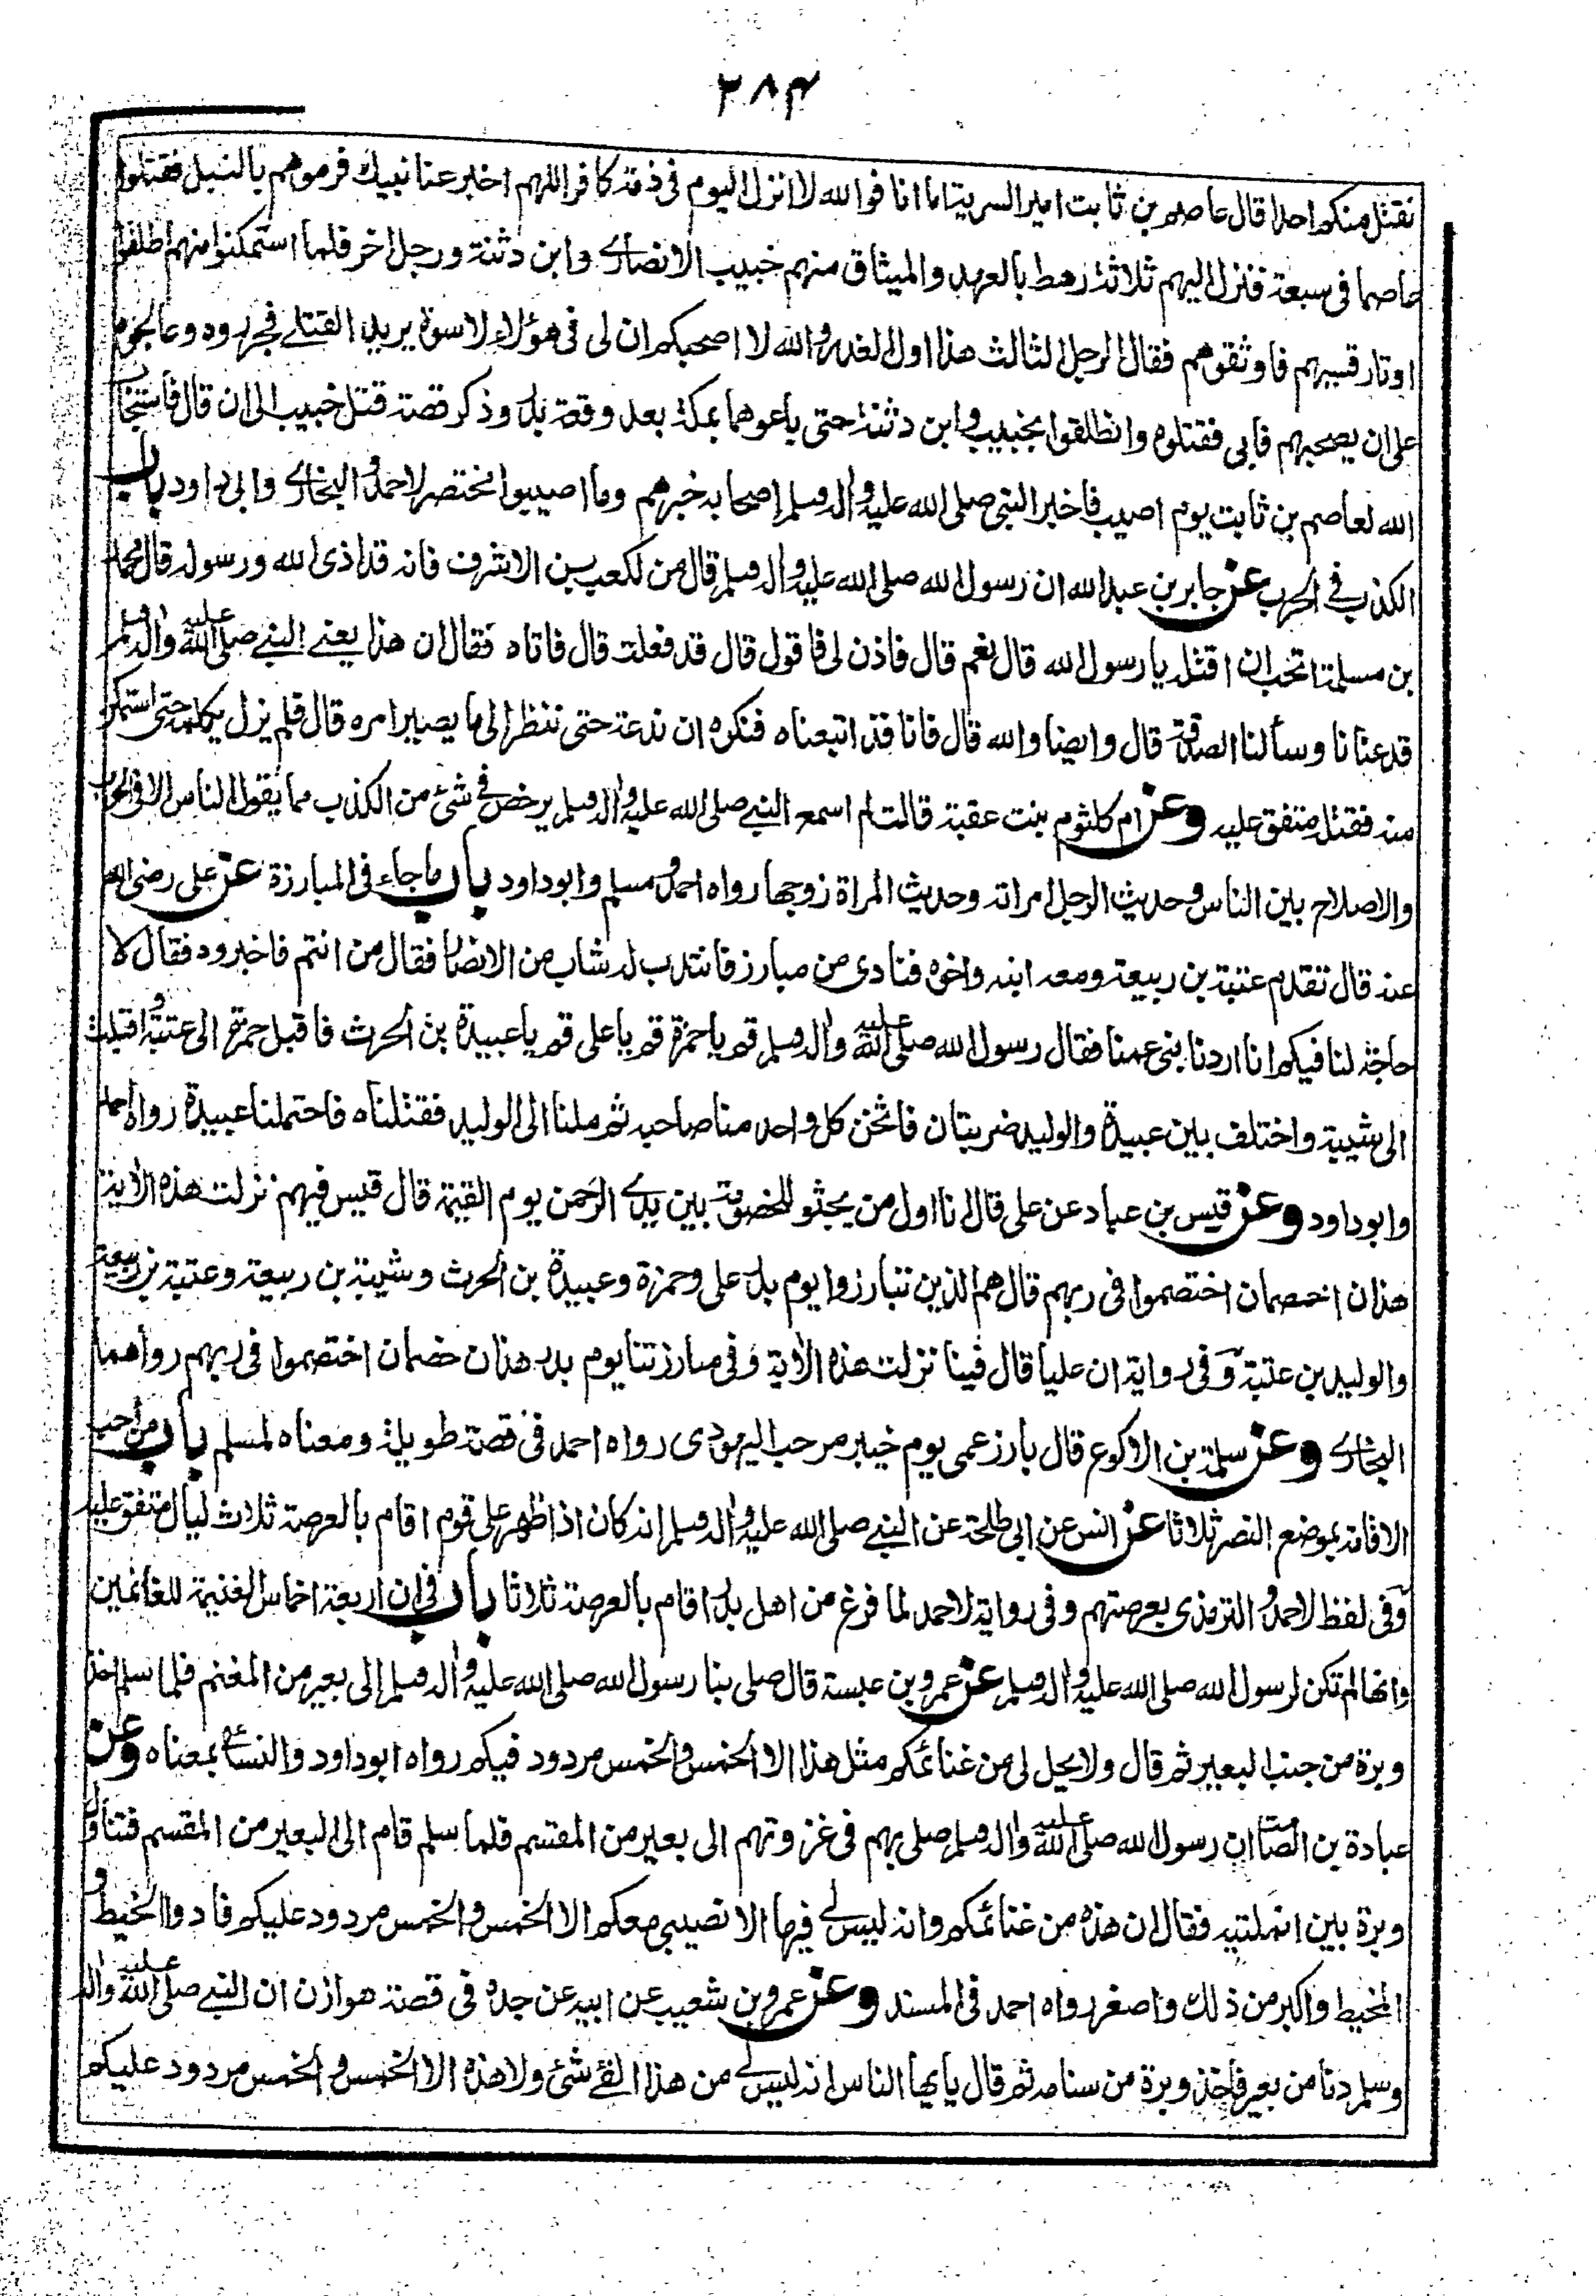 ٣٨٤
نقتل منكم احدا قال عاصم بن ثابت امير السرية اما انا فوالله لا انزل اليوم فى ذمة كافر اللهم اخبر عنا نبيك فرموهم بالنبل فقتلوا
عاصما فى سبعة فنزل اليهم ثلاثة رهط بالعهد والميثاق منهم خبيب الانصارى وابن دثنة ورجل اخر فلما استمكنوا منهم اطلقوا
اوتار قسيهم فاوثقوهم فقال الرجل الثالث هذا اول الغدر والله لا اصحبكم ان لى فى هؤلاء لاسوة يريد القتلى فجرروه وعالجوه
على ان يصحبهم فابى فقتلوه وانطلقوا بخبيب وابن دثنة حتى باعوهما بمكة بعد وقعة بدر وذكر قصة قتل خبيب الى ان قال فاستجاب
الله لعاصم بن ثابت يوم اصيب فاخبر النبى صلى الله عليه واله وسلم اصحابه خبرهم وما اصيبوا مختصر لاحمد والبخارى وابى داود باب
الكذب فى الحرب عن جابر بن عبد الله ان رسول الله صلى الله عليه واله وسلم قال من لكعب بن الاشرف فانه قد اذى الله ورسوله قال محمد
بن مسلمة اتحب ان اقتله يا رسول الله قال نعم قال فاذن لى فاقول قال قد فعلت قال فاتاه فقال ان هذا يعنى النبى صلى الله عليه واله وسلم
قد عنانا وسألنا الصدقة قال وايضا والله قال فانا قد اتبعناه فنكره ان ندعه حتى ننظر الى ما يصير امره قال فلم يزل يكلمه حتى استمكن
منه فقتله متفق عليه وعن ام كلثوم بنت عقبة قالت لم اسمع النبى صلى الله عليه واله وسلم يرخص فى شئ من الكذب مما يقول الناس الا فى الحرب
والاصلاح بين الناس وحديث الرجل امراته وحديث المراة زوجها رواه احمد ومسلم وابو داود باب ما جاء فى المبارزة عن على رضى الله
عنه قال تقدم عتبة بن ربيعة ومعه ابنه واخوه فنادى من مبارز فانتدب له شاب من الانصار فقال من انتم فاخبروه فقال لا
حاجة لنا فيكم انا اردنا بنى عمنا فقال رسول الله صلى الله عليه واله وسلم قم يا حمزة قم يا على قم يا عبيدة بن الحرث فاقبل حمزة الى عتبة واقبلت
الى شيبة واختلف بين عبيدة والوليد ضربتان فاثخن كل واحد منا صاحبه ثم ملنا الى الوليد فقتلناه فاحتملنا عبيدة رواه احمد
وابو داود وعن قيس بن عباد عن على قال انا اول من يجثو للخصومة بين يدى الرحمن يوم القيمة قال قيس فيهم نزلت هذه الاية
هذان خصمان اختصموا فى ربهم قال هم الذين تبارزوا يوم بدر على وحمزة وعبيدة بن الحرث وشيبة بن ربيعة وعتبة بن ربيعة
والوليد بن عتبة وفى رواية ان عليا قال فينا نزلت هذه الاية وفى مبارزتنا يوم بدر هذان خصمان اختصموا فى ربهم رواهما
البخارى وعن سلمة بن الاكوع قال بارز عمى يوم خيبر مرحب اليهودى رواه احمد فى قصة طويلة ومعناه لمسلم باب من احب
الاقامة بموضع النصر ثلاثا عن انس عن ابى طلحة عن النبى صلى الله عليه واله وسلم انه كان اذا ظهر على قوم اقام بالعرصة ثلاث ليال متفق عليه
وفى لفظ لاحمد والترمذى بعرصتهم وفى رواية لاحمد لما فرغ من اهل بدر اقام بالعرصة ثلاثا باب فى ان اربعة اخماس الغنيمة للغانمين
وانها لم تكن لرسول الله صلى الله عليه واله وسلم عن عمرو بن عبسة قال صلى بنا رسول الله صلى الله عليه واله وسلم الى بعير من المغنم فلما سلم اخذ
وبرة من جنب البعير ثم قال ولا يحل لى من غنائمكم مثل هذا الا الخمس والخمس مردود فيكم رواه ابو داود والنسائى بمعناه وعن
عبادة بن الصامت ان رسول الله صلى الله عليه واله وسلم صلى بهم فى غزوتهم الى بعير من المقسم فلما سلم قام الى البعير من المقسم فتناول
وبرة بين انملتيه فقال ان هذه من غنائمكم وانه ليس لى فيها الا نصيبى معكم الا الخمس والخمس مردود عليكم فادوا الخيط و
المخيط واكبر من ذلك واصغر رواه احمد فى المسند وعن عمرو بن شعيب عن ابيه عن جده فى قصة هوازن ان النبى صلى الله عليه واله
وسلم دنا من بعير فاخذ وبرة من سنامه ثم قال يايها الناس انه ليس لى من هذا الفئ شئ ولا هذه الا الخمس والخمس مردود عليكم